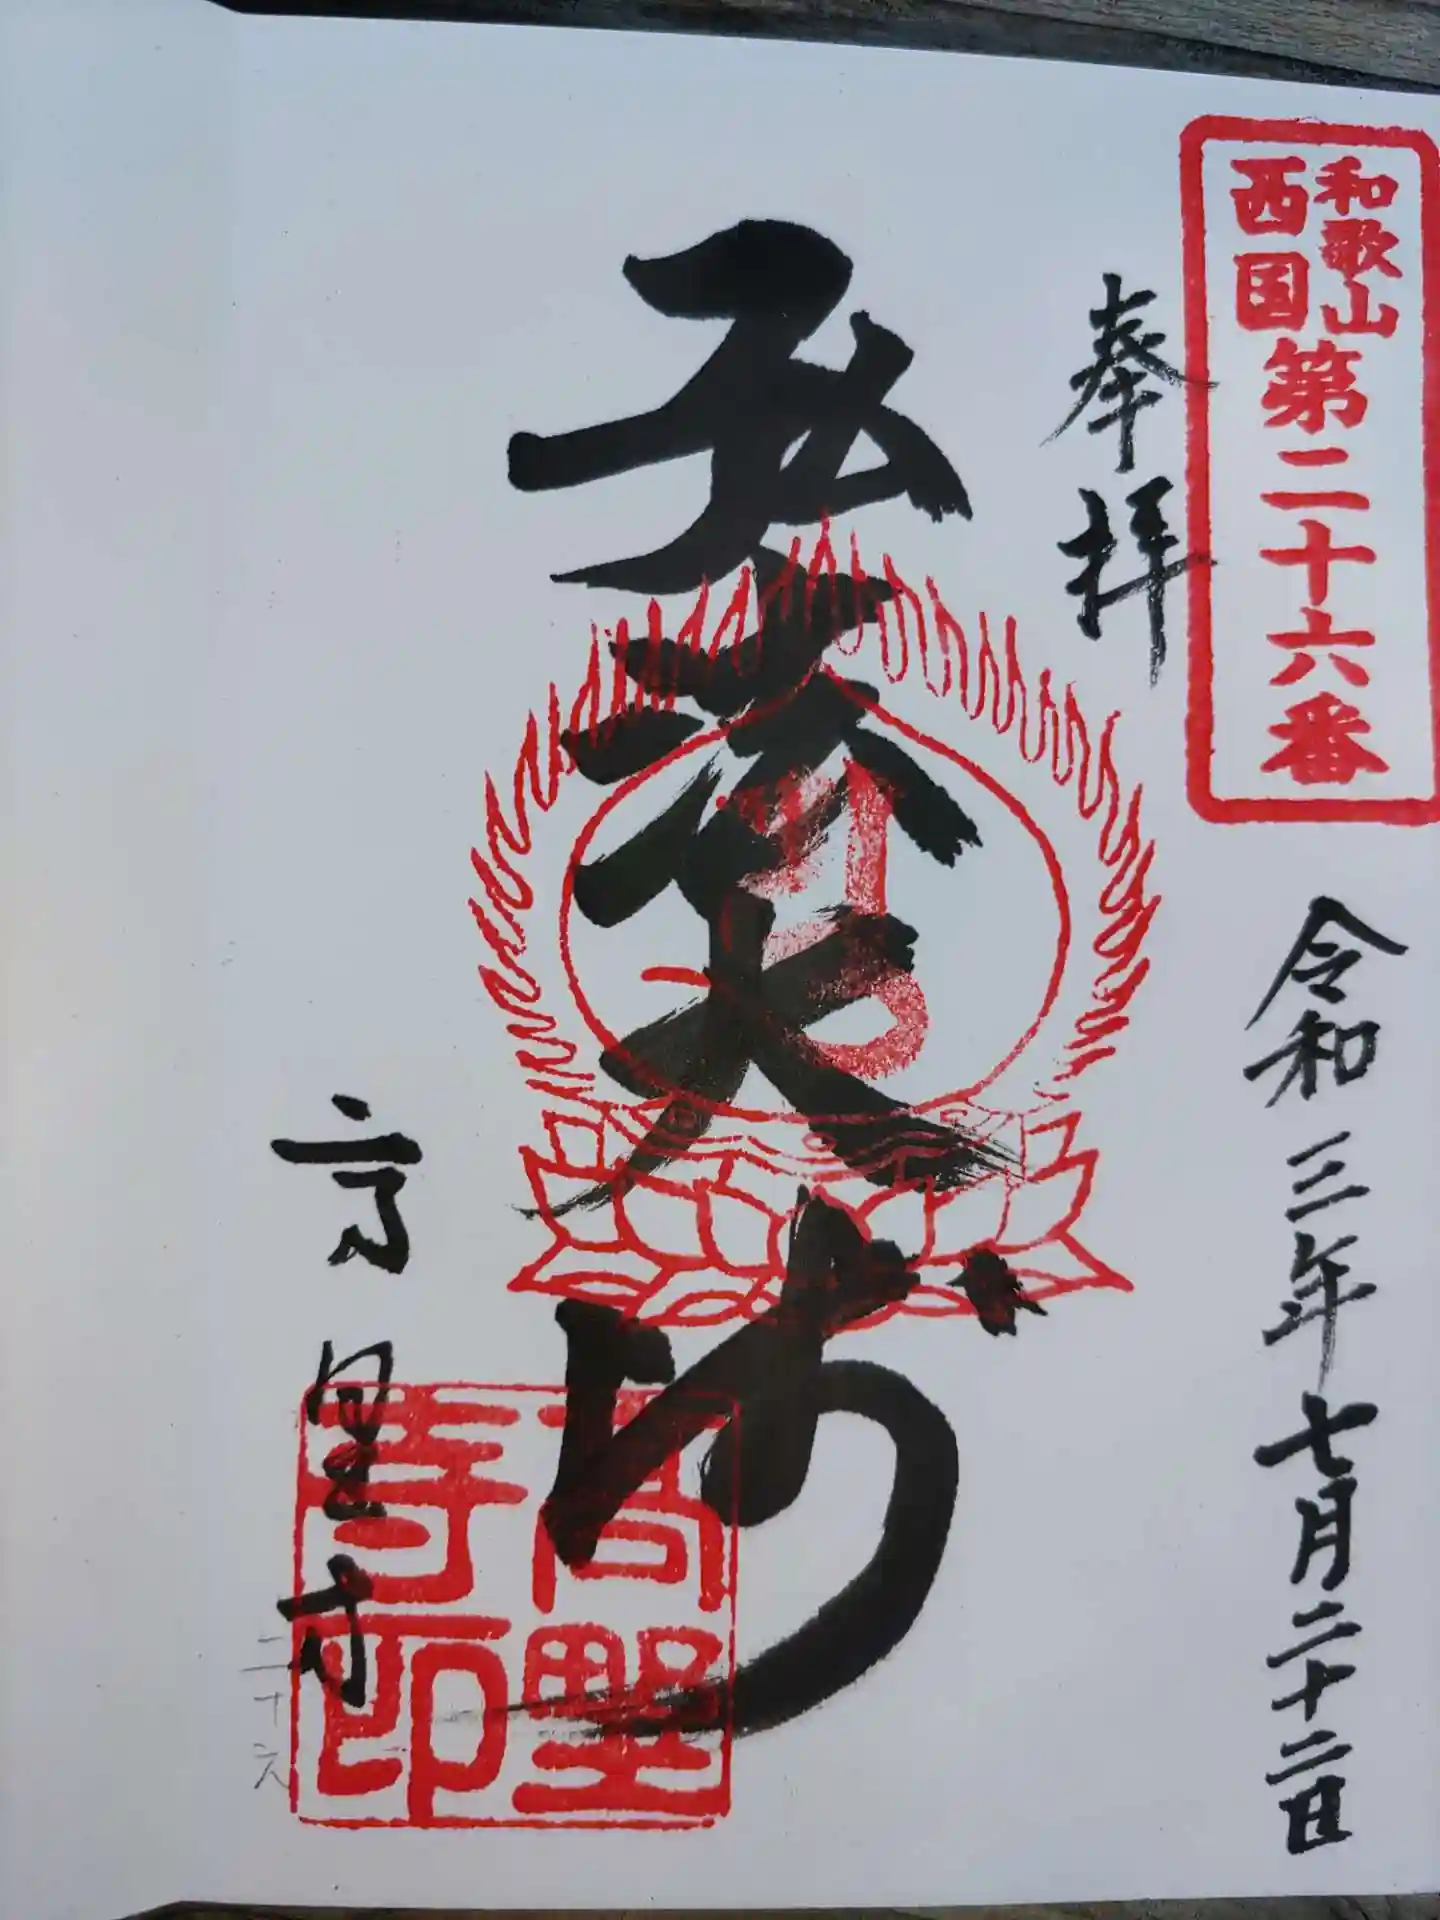 和歌山
西国
第二十六番
奉拝
令和三年七月二十二日
弘法大師
高野寺
高野
寺印
二十六